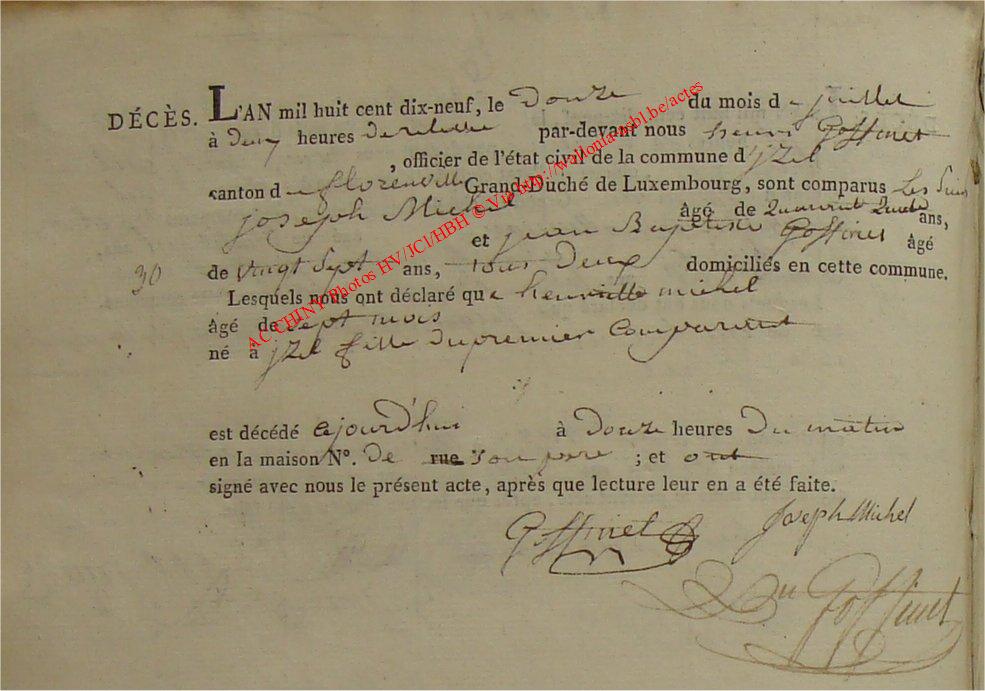 DÉCÈS. L'AN mil huit cent dix-neuf, le Douze du mois de juillet
à deux heures de relevée par-devant nous henri Goffinet
, officier de l'état civil de la commune d'jzel
canton de florenville Grand-Duché de Luxembourg, sont comparus Les Sieurs
joseph Michel âgé de Quarante ans,
et jean Baptiste Goffinet âgé
30 de vingt Sept ans, tous Deux domiciliés en cette commune.
Lesquels nous ont déclaré que henriette michel
âgé de sept mois
né à jzel fille du premier Comparant
est décédé cejourd'hui à Douze heures Du matin
en la maison Nº. de rue son pere ; et ont
signé avec nous le présent acte, après que lecture leur en a été faite.
Goffinet Joseph Michel
Goffinet
AC CHINY Photos HV/JCl/HBH © Via http://wallonia-asbl.be/actes